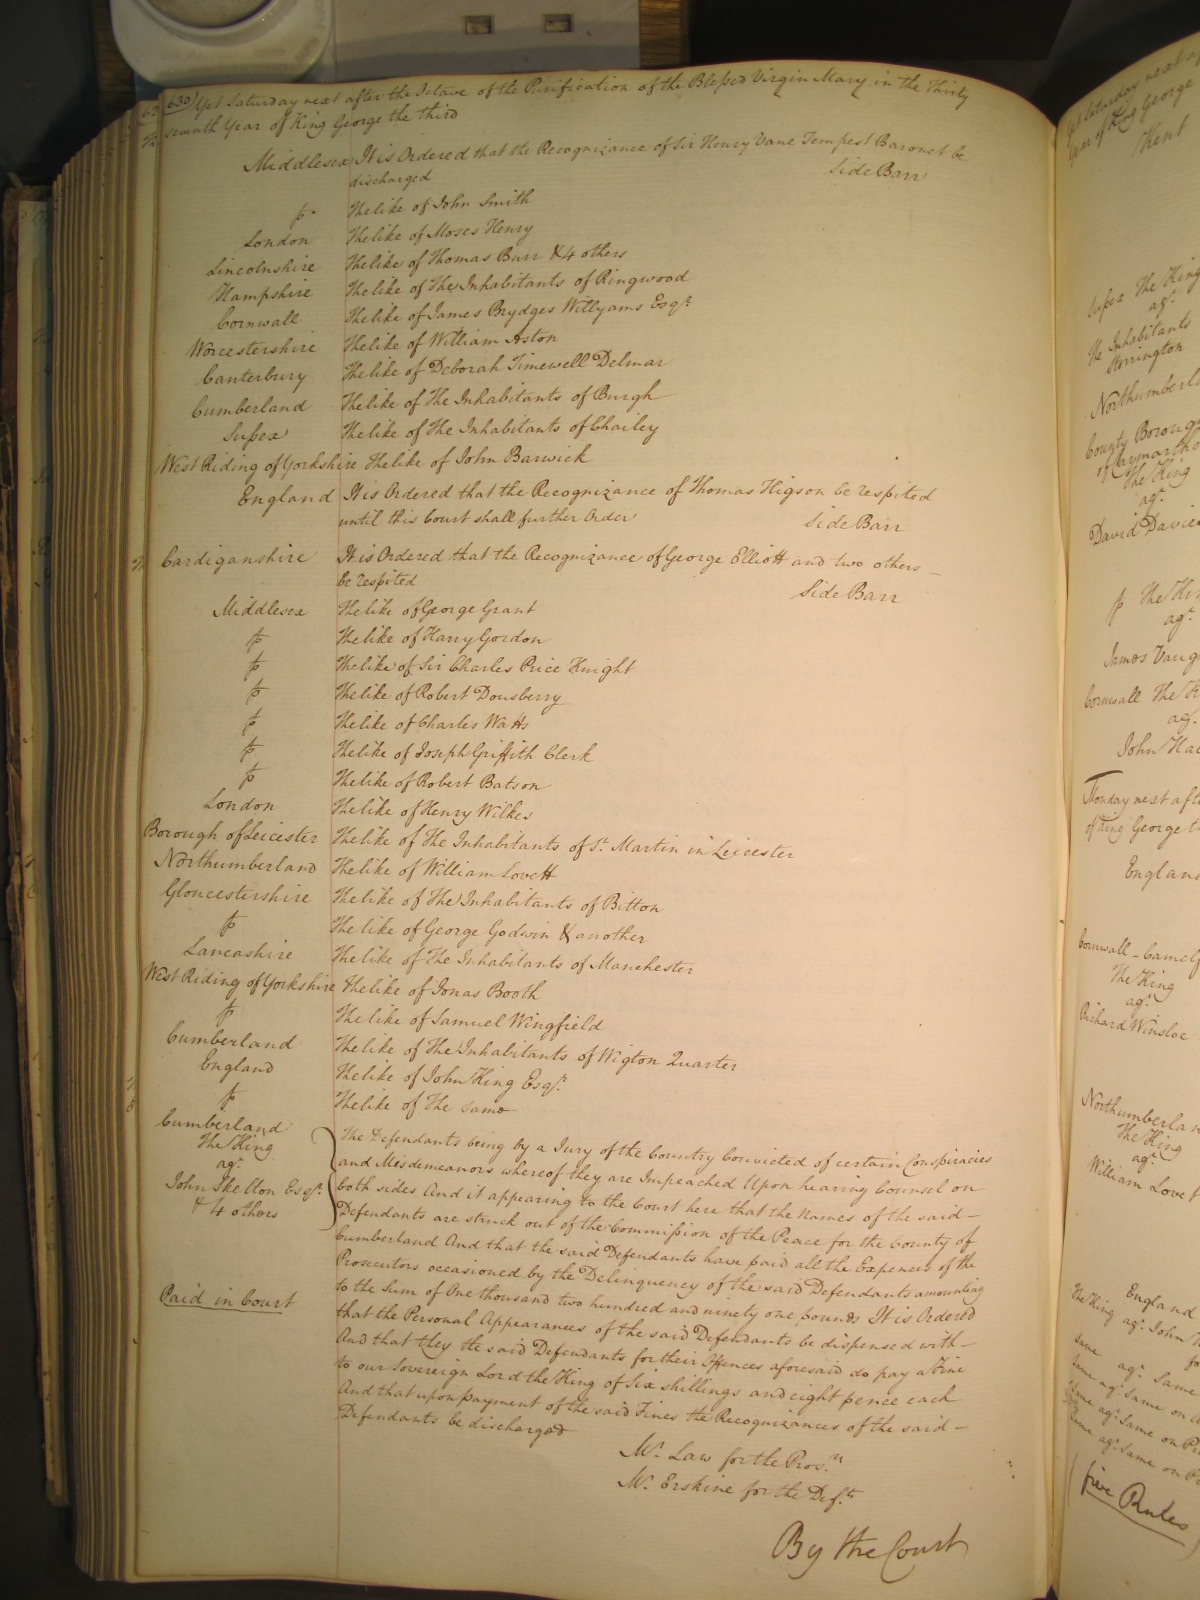 630) Yet Saturday next after the Octave of the Purification of the Blessed Virgin Mary in the Thirty
seventh Year of King George the third
Middlesex It is Ordered that the Recognizance of Sir Henry Vane Tempest Baronet be
discharged Side Barr
London The like of John Smith
The like of Moses Henry
Lincolnshire The like of Thomas Burr & 4 others
Hampshire The like of The Inhabitants of Ringwood
Cornwall The like of James Brydges Willyams Esqr.
Worcestershire The like of William Aston
Canterbury The like of Deborah Timewell Delmar
Cumberland The like of The Inhabitants of Burgh
Sussex The like of The Inhabitants of Chailey
West Riding of Yorkshire The like of John Barwick
England It is Ordered that the Recognizance of Thomas Higson be respited
until this Court shall further Order Side Barr
Cardiganshire It is Ordered that the Recognizance of George Elliott and two others
be respited Side Barr
Middlesex The like of George Grant
The like of Harry Gordon
The like of Sir Charles Price Knight
The like of Robert Dousberry
The like of Charles Watts
The like of Joseph Griffith Clerk
The like of Robert Batson
London The like of Henry Wilkes
Borough of Leicester The like of The Inhabitants of St. Martin in Leicester
Northumberland The like of William Lovett
Gloucestershire The like of The Inhabitants of Bitton
The like of George Godwin & another
Lancashire The like of The Inhabitants of Manchester
West Riding of Yorkshire The like of Jonas Booth
The like of Samuel Wingfield
Cumberland The like of The Inhabitants of Wigton Quarter
England The like of John King Esqr.
The like of The same
Cumberland
The King
agt.
John Skelton Esqr.
& 4 others
The Defendants being by a Jury of the Country Convicted of certain Conspiracies
and Misdemeanors whereof they are Impeached Upon hearing Counsel on
both sides And it appearing to the Court here that the Names of the said
Defendants are struck out of the Commission of the Peace for the County of
Cumberland And that the said Defendants have paid all the Expences of the
Prosecutors occasioned by the Delinquency of the said Defendants amounting
to the Sum of One thousand two hundred and ninety one pounds It is Ordered
that the Personal Appearances of the said Defendants be dispensed with
And that they the said Defendants for their Offences aforesaid do pay a Fine
to our Sovereign Lord the King of Six shillings and eight pence each
And that upon payment of the said Fines the Recognizances of the said
Defendants be discharged
Paid in Court
Mr. Law for the Pros.n
Mr. Erskine for the Def.ts
By the Court
Yet Saturday next
Year of King George
Kent
Sussex The King
agt.
The Inhabitants
Storrington
County Borough
The King
agt.
David Davies
The
agt.
James
Cornwall The
agt.
John
Monday next
of King George
England
Cornwall
The King
agt.
Richard Winsloe
The King
agt.
William Lovet
England
The King agt. John
same agt. Same
Same agt. Same on
Same agt. Same on
Same agt. Same on
five Rules